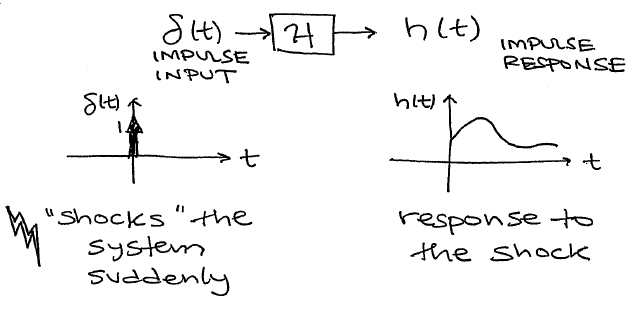 δ(t) → H → h(t)
IMPULSE
INPUT
IMPULSE
RESPONSE
δ(t)
1
t
h(t)
t
"shocks" the
system
suddenly
response to
the shock